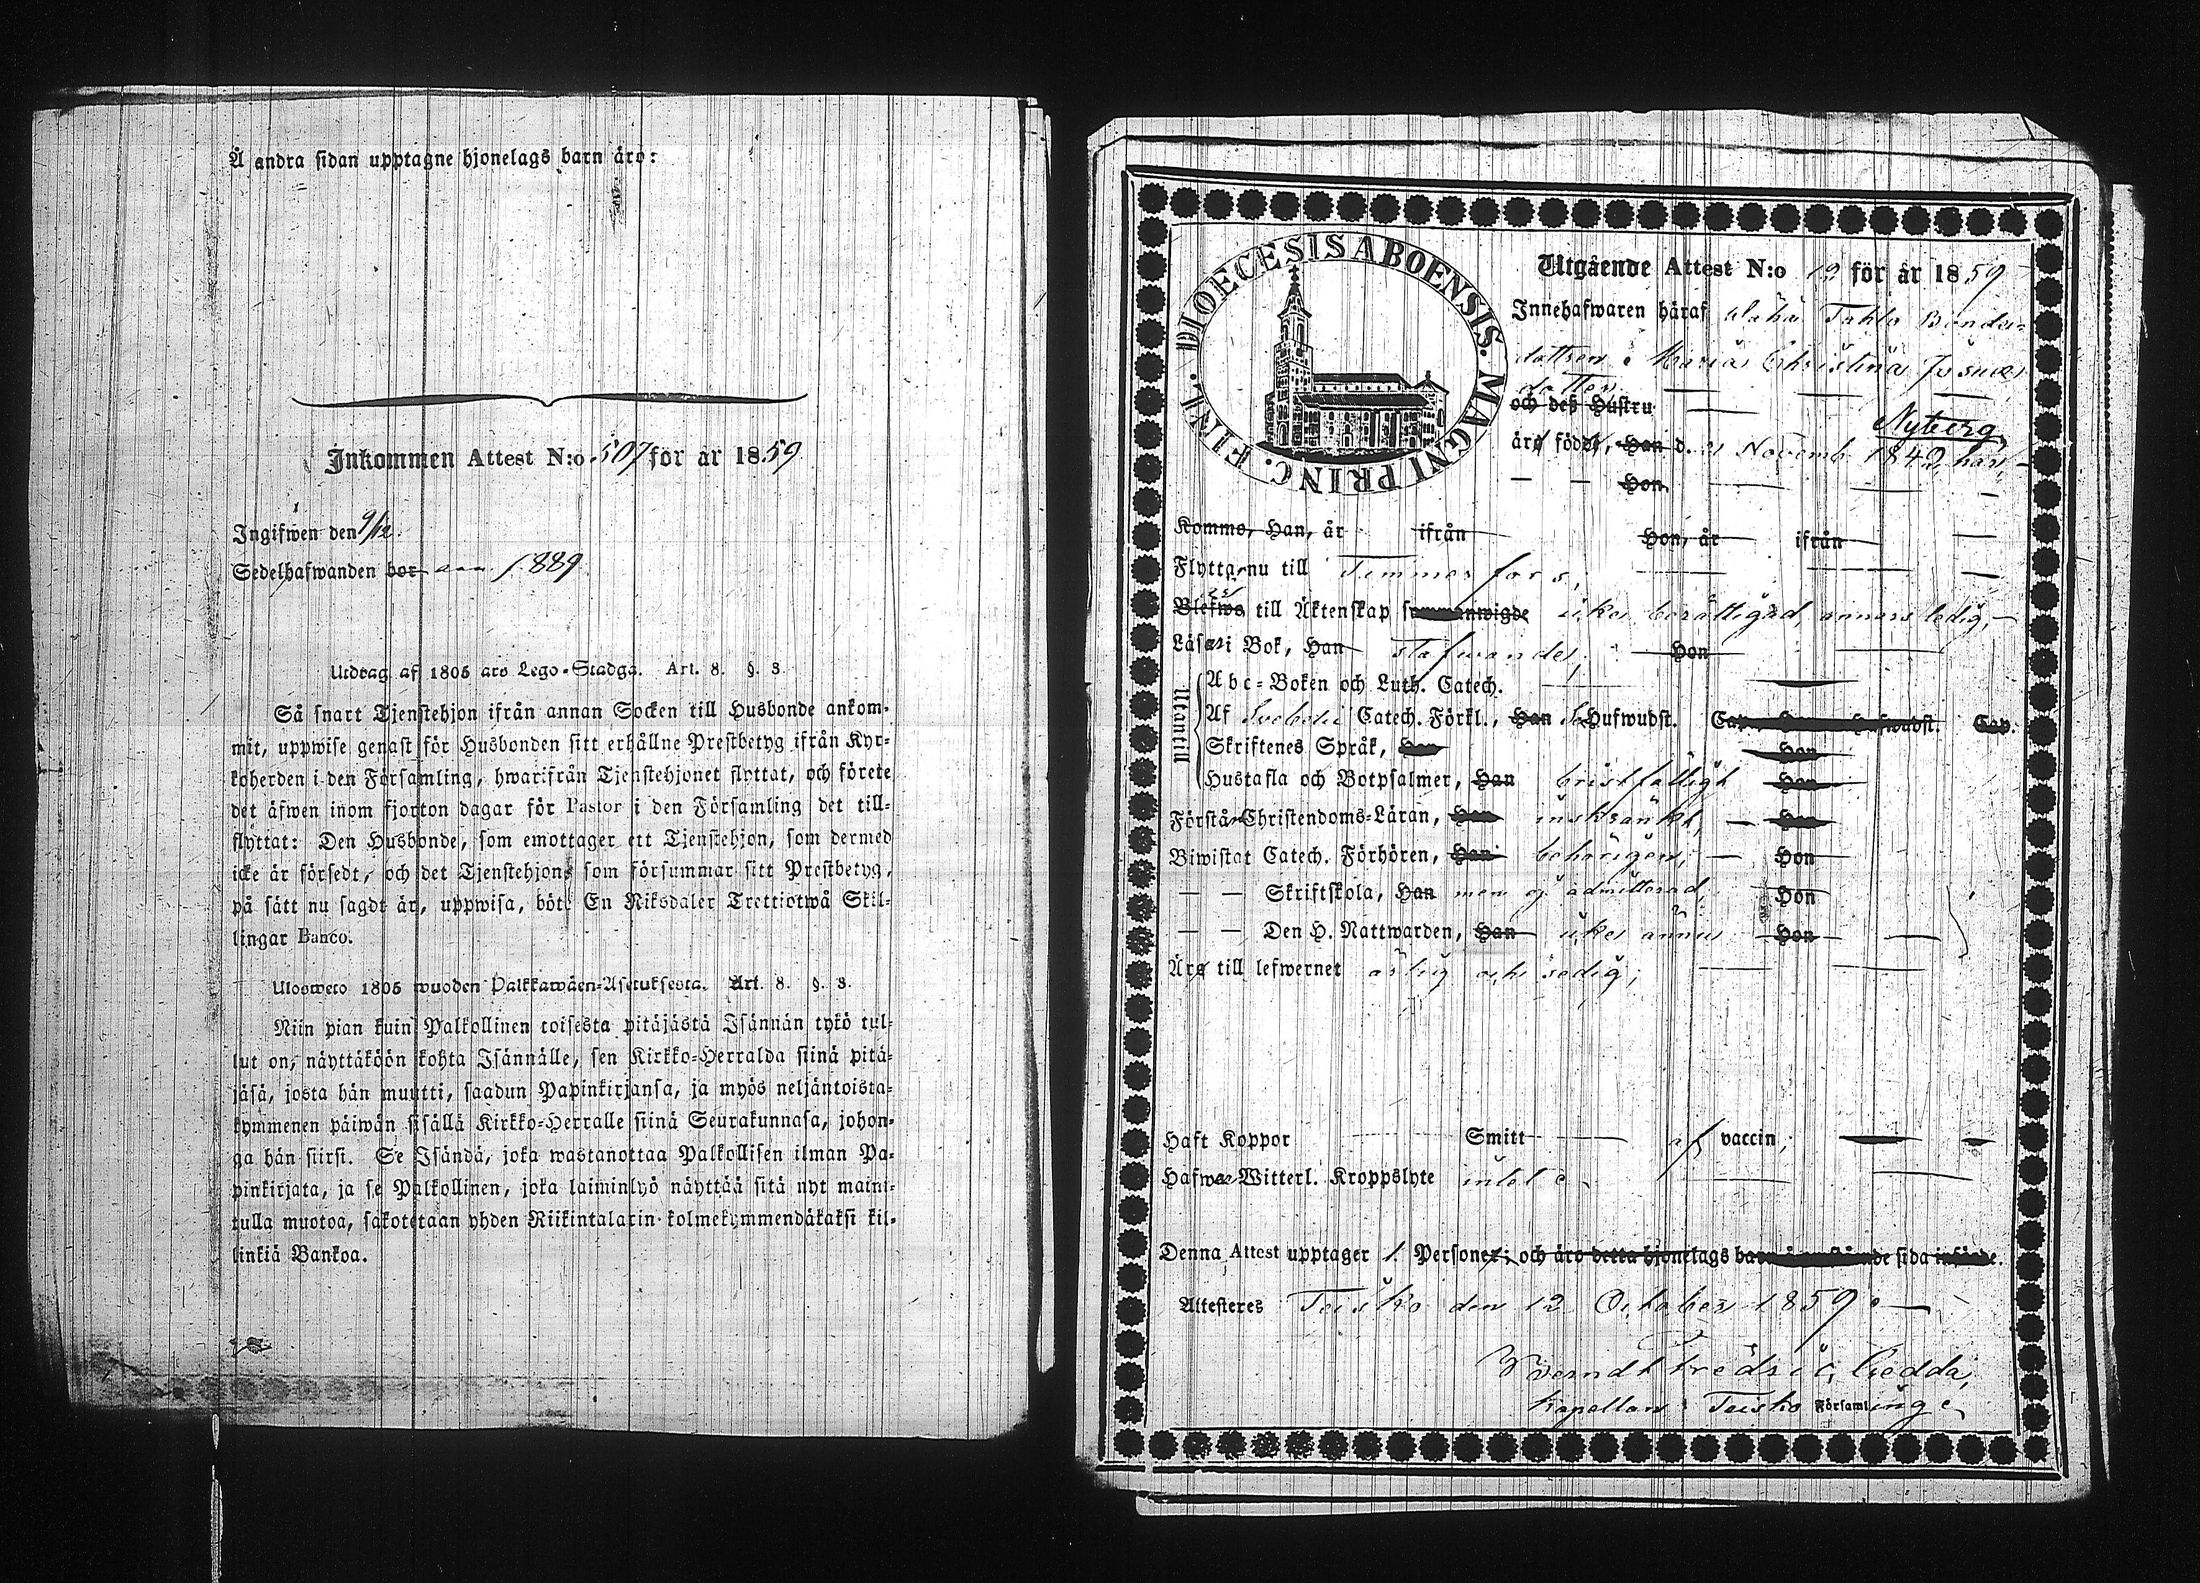 Å andra sidan upptagne hjonelags barn äro:
Inkommen Attest N:o 507 för år 1859
Ingifwen den 9/12.
Sedelhafwanden bor 1889
Utdrag af 1805 års Lego-Stadga. Art. 8. §. 3.
Så snart Tjenstehjon ifrån annan Socken till Husbonde ankom-
mit, uppwise genast för Husbonden sitt erhållne Prestbetyg ifrån Kyr-
koherden i den Församling, hwarifrån Tjenstehjonet flyttat, och förete
det äfwen inom fjorton dagar för Pastor i den Församling det till-
flyttat: Den Husbonde, som emottager ett Tjenstehjon, som dermed
icke är försedt, och det Tjenstehjon, som försummar sitt Prestbetyg,
på sätt nu sagdt är, uppwisa, böte En Riksdaler Trettiotwå Skil-
lingar Banco.
Ulosweto 1805 wuoden Palkkawäen-Asetuksesta. Art. 8. §. 3.
Niin pian kuin Palkollinen toisesta pitäjästä Isännän tykö tul-
lut on, näyttäköön kohta Isännälle, sen Kirkko-Herralda siinä pitä-
jäsä, josta hän muutti, saadun Papinkirjansa, ja myös neljäntoista-
kymmenen päiwän sisällä Kirkko-Herralle siinä Seurakunnasa, johon-
ga hän siirsi. Se Isändä, joka wastanottaa Palkollisen ilman Pa-
pinkirjata, ja se Palkollinen, joka laiminlyö näyttää sitä nyt maini-
tulla muotoa, sakotetaan yhden Riikintalarin kolmekymmendäkaksi kil-
linkiä Bankoa.
DIOECESIS ABOENSIS. MAGNI PRINC. FINL.
Utgående Attest N:o 12 för år 1859
Innehafwaren häraf Tahlo Bonde-
dottren Maria Christina Josua
dotter
och deß Hustru
Nyberg
äro födde, Han d. 21 Novemb. 1842, har
Hon
Komma, Han, år ifrån Hon, år ifrån
Flytta nu till Tammerfors,
Blefwo till Äktenskap sammanwigde icke berättigad, annars ledig,
Läser i Bok, Han Stafwande, Hon
Utantill
Abc-Boken och Luth. Catech.
Af Svebelii Catech. Förkl., Han Hufwudst. Cap. Hufwudst. Cap.
Skriftenes Språk, Han Hon
Hustafla och Botpsalmer, Han bristfälligt Hon
Förstår Christendoms-Läran, Han inskränkt, Hon
Biwistat Catech. Förhören, Han behörigen, Hon
— — Skriftskola, Han men ej admitterad, Hon
— — Den H. Nattwarden, Han icke ännu Hon
Äro till lefwernet ärlig och sedig,
Haft Koppor Smitt af vaccin,
Hafwa Witterl. Kroppslyte intet
Denna Attest upptager 1 Personer; och äro detta hjonelags barn å omstående sida införde.
Attesteres Teisko den 12 October 1859
Berndt Fredric Gedda,
Kapellan i Teisko Församling.